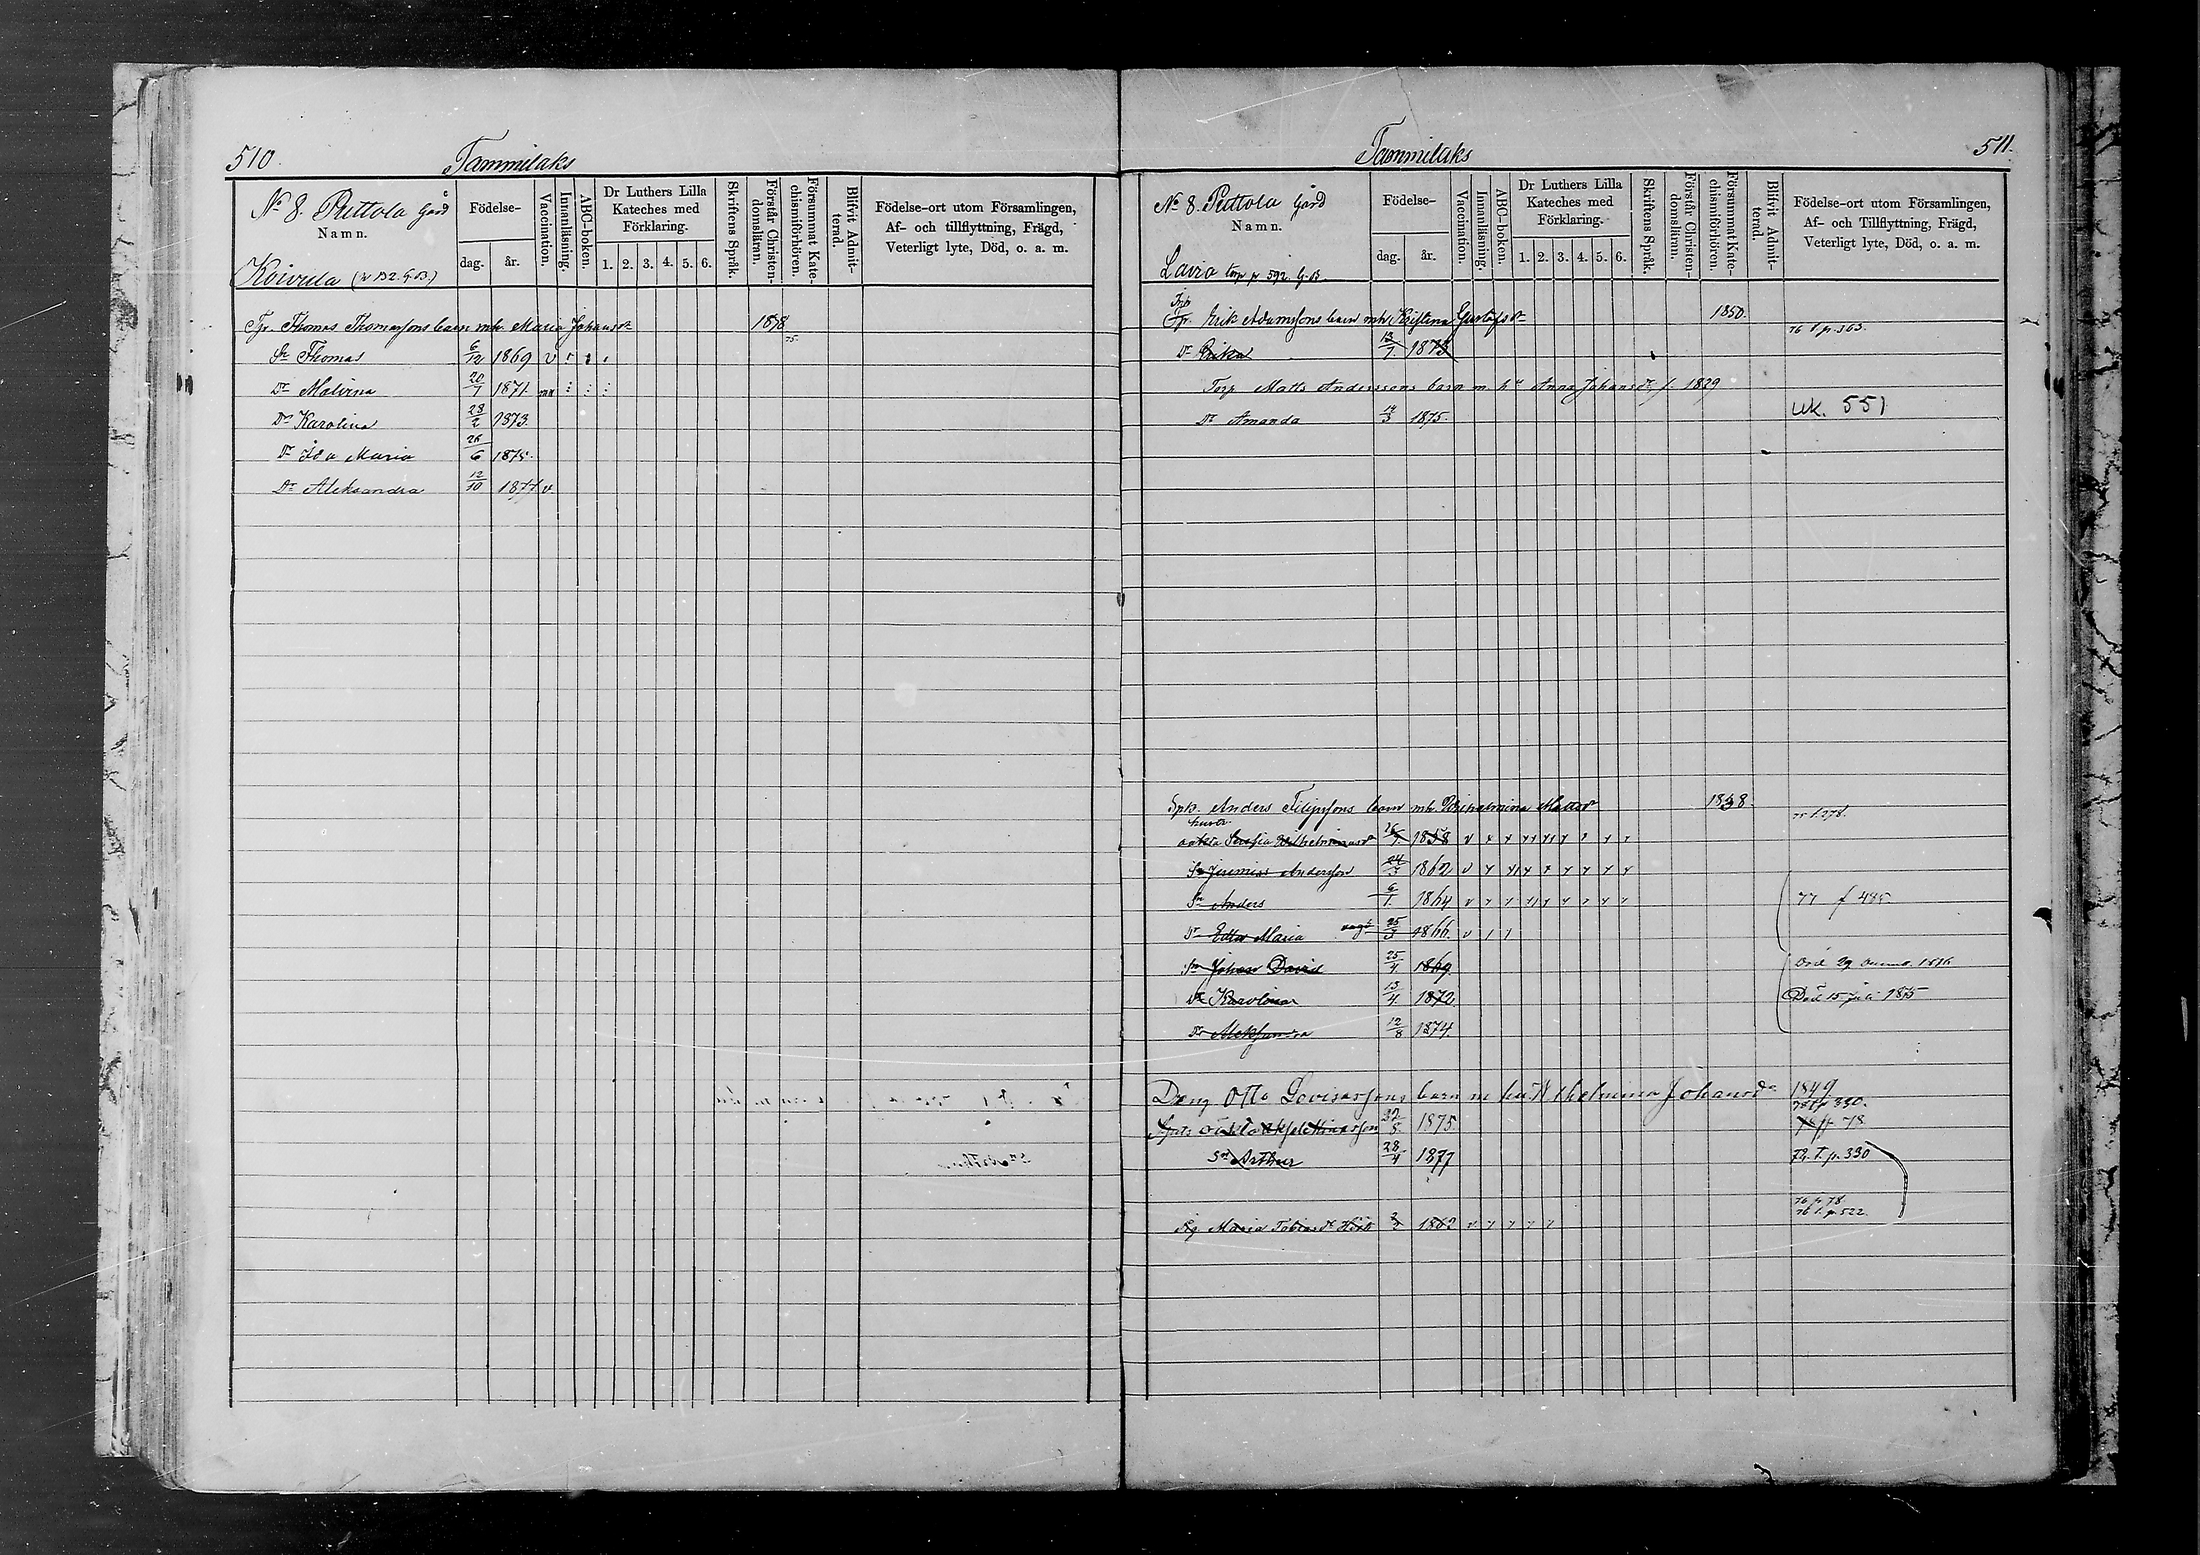 510.
Tammilaks
N° 8. Puttola Gård
Namn.
Födelse-
dag.
år.
Vaccination.
Innanläsning.
ABC-boken.
Dr Luthers Lilla
Kateches med
Förklaring.
1. 2. 3. 4. 5. 6.
Skriftens Språk.
Förstår Christen-
domsläran.
Försummat Kate-
chismiförhören.
Blifvit Admit-
terad.
Födelse-ort utom Församlingen,
Af- och tillflyttning, Frägd,
Veterligt lyte, Död, o. a. m.
Koivula
Thomas Thomassons barn mh. Maria Johansdr
75.
Sn Thomas 6/12 1869 v
Dr Malvina 20/7 1871
Dr Karolina 28/2 1873.
Dr Ida Maria 26/6 1875.
Dr Aleksandra 12/10 1877 v
Tammilaks
511.
N° 8. Puttola Gård
Namn.
Födelse-
dag.
år.
Vaccination.
Innanläsning.
ABC-boken.
Dr Luthers Lilla
Kateches med
Förklaring.
1. 2. 3. 4. 5. 6.
Skriftens Språk.
Förstår Christen-
domsläran.
Försummat Kate-
chismiförhören.
Blifvit Admit-
terad.
Födelse-ort utom Församlingen,
Af- och Tillflyttning, Frägd,
Veterligt lyte, Död, o. a. m.
torp p 592
Erik Adamssons barn mh Kristina Gustafsdr 1850.
76 p. 363.
Dr Erika 1873
Torp Matts Anderssons barn m. hu Anna Johansdr f. 1829
Dr Amanda 14/3 1875. uk. 551
Anders Filipssons barn mh. Vilhelmina Mattsdr
Serafia Wilhelminasdr 1858
Sn Jeremias Andersson 24/3 1862
Sn Anders 6/1 1864 77 f 495
Dr Edla Maria 25/3 1866.
Sn Johan David 25/4 1869.
Dr Karolina 13/4 1872. Död 15 juli 1875
Dr Aleksandra 12/8 1874.
Otto Lovisassons barn m hu Wilhelmina Johansdr 1849
p 330.
1875 78
Sn Arthur 28/4 1877 p. 330
76 p 78
p. 522
Maria Tobiasdr 1862